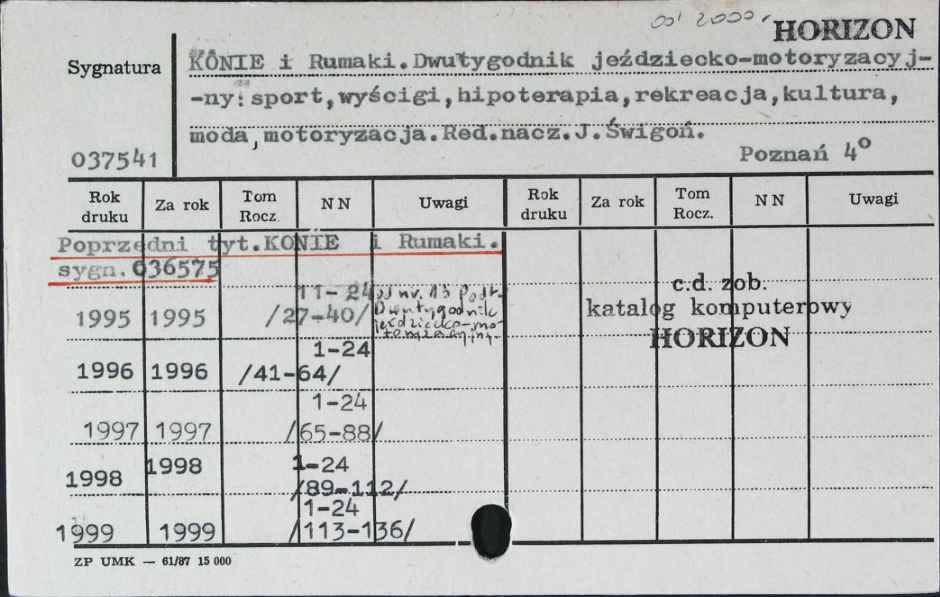 od 2000 r.
HORIZON
Sygnatura
KONIE i Rumaki.Dwutygodnik jeździecko-motoryzacyj-
-ny: sport,wyścigi,hipoterapia,rekreacja,kultura,
moda,motoryzacja.Red.nacz.J.Świgoń.
037541
Poznań 4°
Rok druku Za rok Tom Rocz. NN Uwagi Rok druku Za rok Tom Rocz. NN Uwagi
Poprzedni tyt.KONIE i Rumaki.
sygn.036575
c.d. zob.
katalog komputerowy
HORIZON
11-24 od nr. 13 podt.
1995 1995 /27-40/ Dwutygodnik
jeździecko-mo-
toryzacyjny.
1-24
1996 1996 /41-64/
1-24
1997 1997 /65-88/
1998 1998 1-24
/89-112/
1-24
1999 1999 /113-136/
ZP UMK — 61/87 15 000